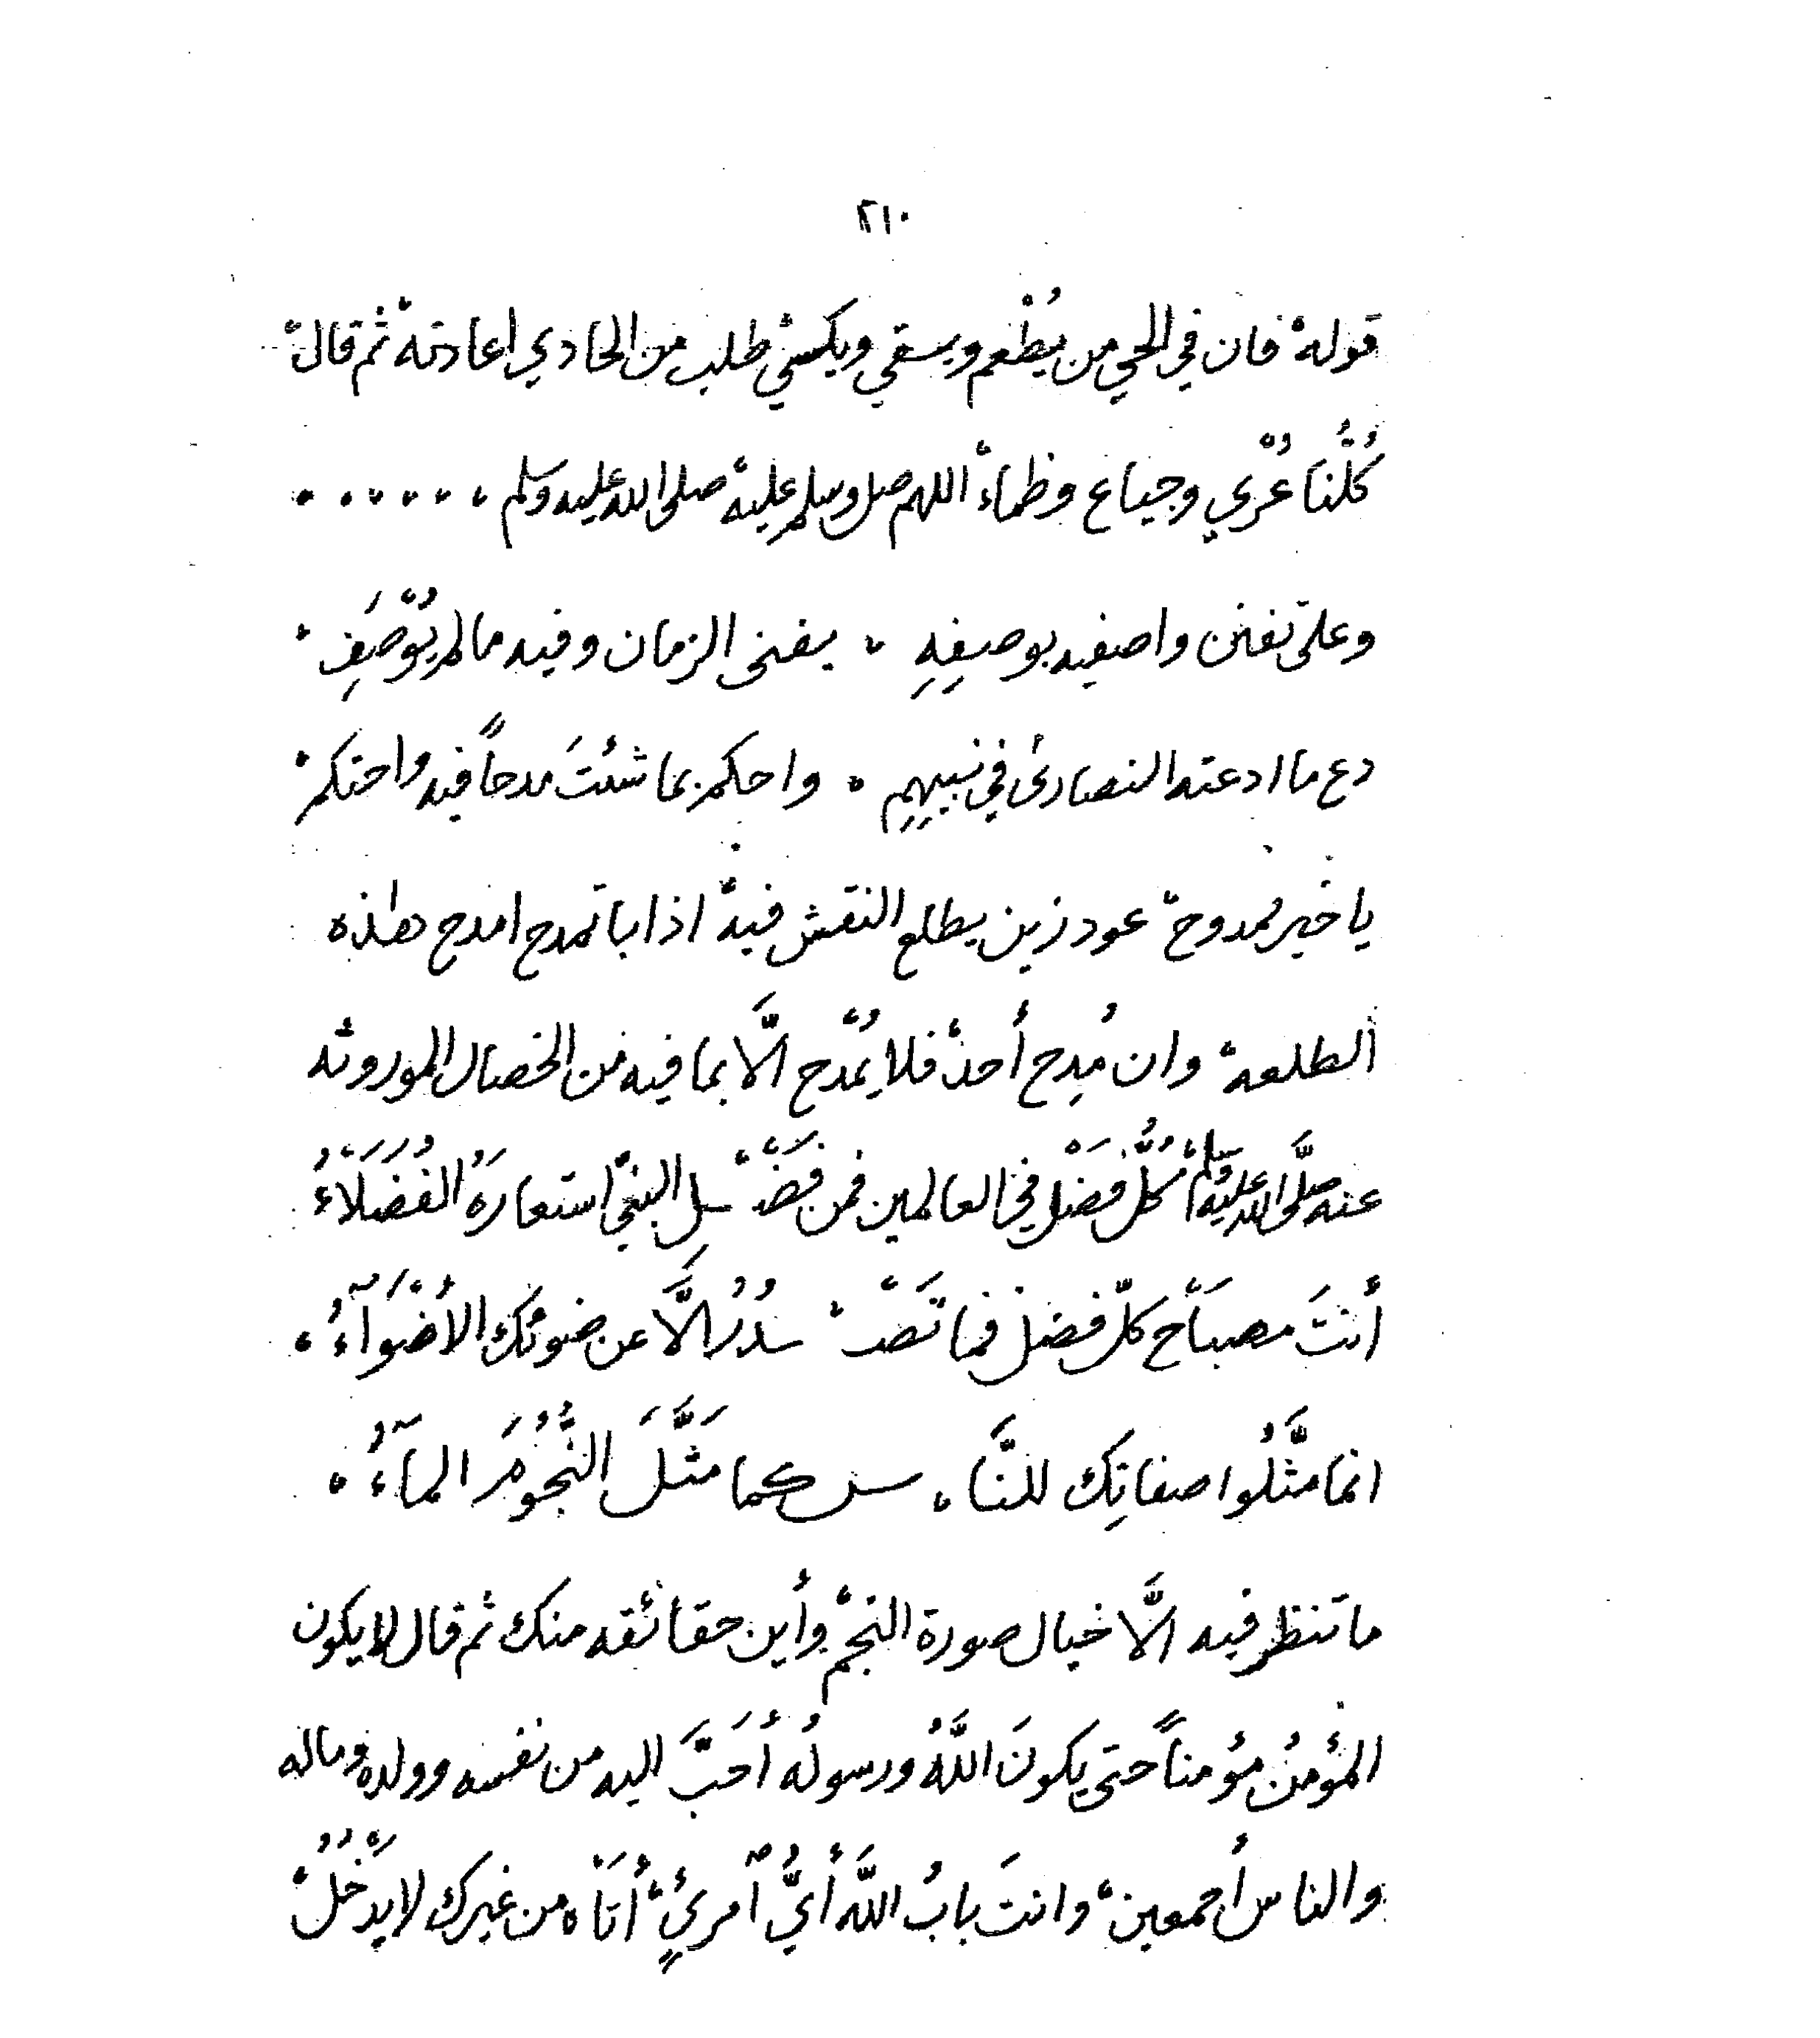 ٢١٠
قوله فان في الحي من يُطْعم ويسقي ويكسي طلب من الحادي اعادته ثم قال
كُلُّنا عُرْي وجياع وظماء اللهم صل وسلم عليه صلى الله عليه وسلم ......
وعلى تفنن واصفيه بوصِفِهِ ، يفنى الزمان وفيه مالم يُوْصَفِ
دع ما ادعته النصارى في نبيهِمِ ، واحكم بما شئتَ مدحاً فيه واحتكمِ
ياخير ممدوح عود زين يطلع النقش فيه اذا با تمدح امدح هذه
الطلعه وان مُدِح أحد فلا يُمْدح الَّا بما فيه من الخصال الموروثه
عنه صلَّى الله عليه وسلم كُلُّ فَضْلٍ في العالمين فمن فَضْـ ـلِ النبيّ استعارَهُ الفُضَلَآءُ
أنتَ مصباَح كلّ فضل فما تَصْـ ـدُرُ الَّا عن ضوئِك الاَضْوَآءُ ،
انما مثَّلُوا صفاتِك للنَّا ، س كما مَثَّلَ النُّجُوْمَ المآءُ ،
ما تنظر فيه الَّا خيال صورة النجم وأين حقائقه منك ثم قال لا يكون
المؤمنُ مؤمناً حتى يكونَ اللَّهُ ورسولُه أحَبَّ اليه من نفسه وولده وماله
والناس أجمعين وانتَ بابُ اللَّه أيُّ ٱمرئٍ أتَاْه من غيرك لا يدْخُلُ